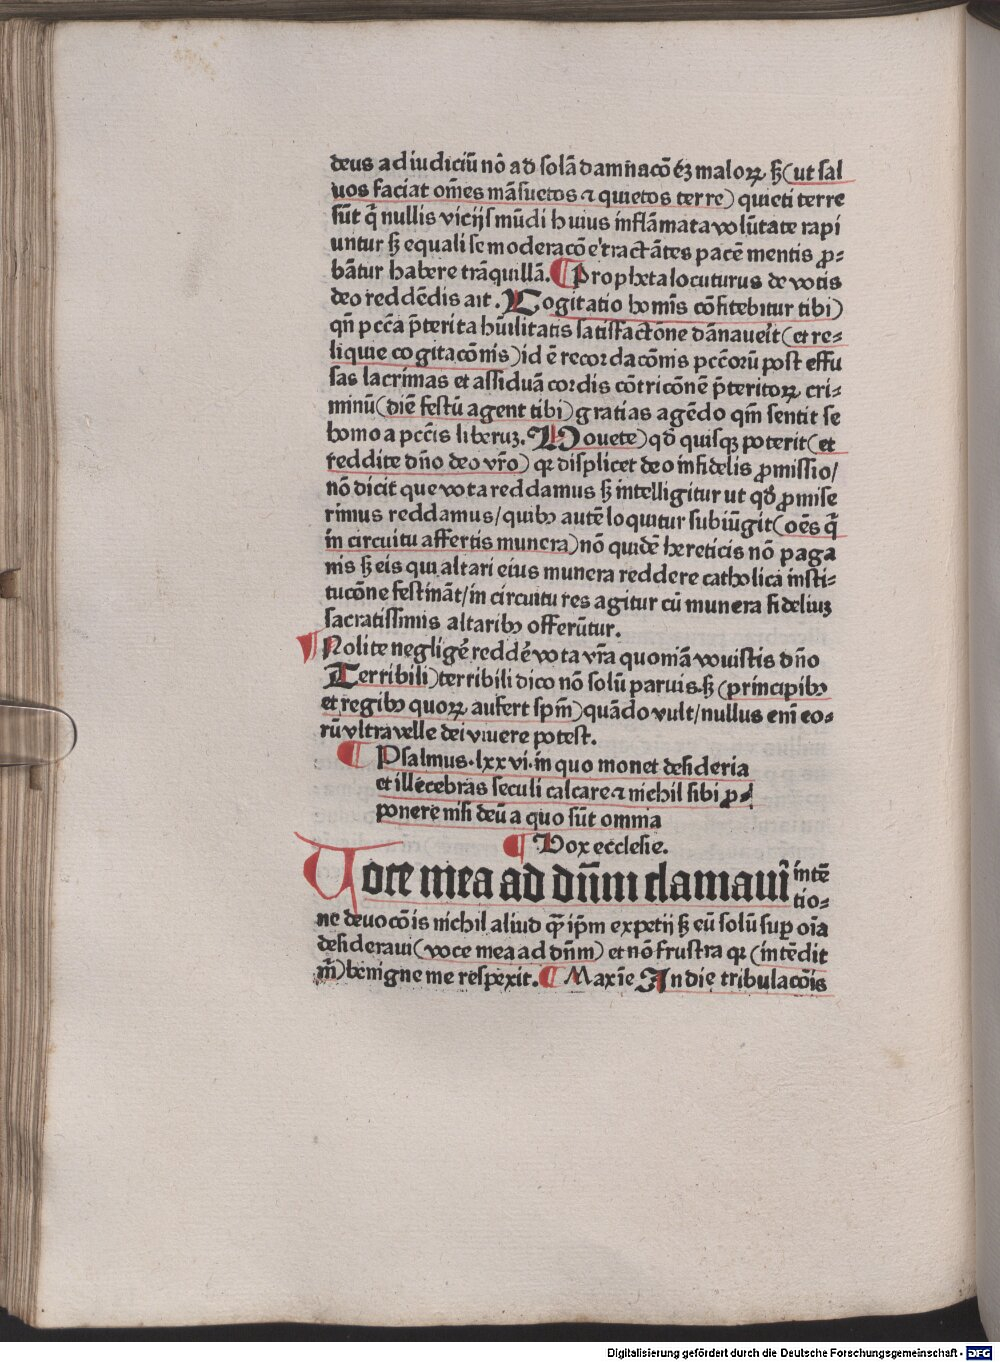 deus ad iudiciū nō ad solā damnacōēꝫ maloꝝ sꝫ (ut sal
uos faciat om̄es māsuetos ⁊ quietos terre) quieti terre
sūt q̄ nullis vicijs mūdi huius inflāmata volūtate rapi
untur sꝫ equali se moderacōe tractātes pacē mentis ꝓ-
bātur habere trāquillā. ¶ Propheta locuturus de votis
deo reddēdis ait. Cogitatio homīs cōfitebitur tibi)
qn̄ pcc̄a p̄terita hūilitatis satisfactōne dānaueīt (et re-
liquie cogitacōnis) id ē recordacōnis pcc̄orū post effu
sas lacrimas et assiduā cordis cōtricōnē p̄teritoꝝ cri-
minū (diē festū agent tibi) gratias agēdo qm̄ sentit se
homo a pcc̄is liberuꝫ. Vouete) qd̄ quisqꝫ poterit (et
reddite dn̄o deo vr̄o) qꝛ displicet deo infidelis ꝓmissio/
nō dicit que vota reddamus sꝫ intelligitur ut qd̄ ꝓmise
rimus reddamus/ quibꝰ autē loquitur subiūgit (oēs q̄
in circuitu affertis munera) nō quidē hereticis nō paga
nis sꝫ eis qui altari eius munera reddere catholica insti-
tucōne festināt/ in circuitu res agitur cū munera fideliuꝫ
sacratissimis altaribꝰ offerūtur.
¶ Nolite negligē reddē vota vr̄a quoniā vouistis dn̄o
Terribili) terribili dico nō solū paruis sꝫ (principibꝰ
et regibꝰ quoꝝ aufert spm̄) quādo vult/ nullus eni eo-
rū vltra velle dei viuere potest.
¶ Psalmus .lxxvi. in quo monet desideria
et illecebras seculi calcare ⁊ nichil sibi ꝓ-
ponere nisi deū a quo sūt omnia
¶ Vox ecclesie.
Voce mea ad dn̄m clamaui intē
tio-
ne deuocōis nichil aliud q̄ ip̄m expetij sꝫ eū solū suꝑ oīa
desideraui (voce mea ad dn̄m) et nō frustra qꝛ (intēdit
m̄) benigne me respexit. ¶ Maxīe In die tribulacōis
Digitalisierung gefördert durch die Deutsche Forschungsgemeinschaft - DFG